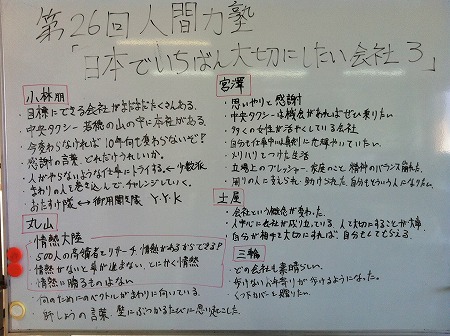 第26回 人間力塾
「日本でいちばん大切にしたい会社3」
小林朋
・目標にできる会社がまだまだたくさんある。
・中央タクシー 若穂の山の中に本社がある。
・今変わらなければ10年何も変わらないぞ?
・感謝の言葉、どれだけうれしいか。
・人がやらないような仕事にトライする。← 少数派
・まわりの人も巻き込んで、チャレンジしていく。
・おたすけ隊 ← 御用聞き隊 Y.Y.K
丸山
・情熱大陸
・500人の高齢者とリサーチ、情熱があるからできる?
・情熱がないと事が進まない、とにかく情熱
・情熱に勝るものはない
・何のためにのベクトルがまわりに向いている。
・朝しょうの言葉 壁にぶつかるたびに思い起こした。
宮澤
・思いやりと感謝
・中央タクシーは機会があればぜひ乗りたい
・多くの女性が活やくしている会社
・自分も仕事中は真剣に
・メリハリをつけた生活
・立場上のプレッシャー、家庭のこと 精神のバランス崩れた。
・周りの人に支えられ助けられた 自分もそういう人になりたい。
土屋
・会社という概念が変わった。
・人中心に会社が成り立っている。人を大切にすることが大事
・自分が相手を大切にすれば、自分もしてもらえる。
三輪
・どの会社も素晴らしい。
・歩けないお年寄りが歩けるようになった。
・くつ下カバーを贈りたい。